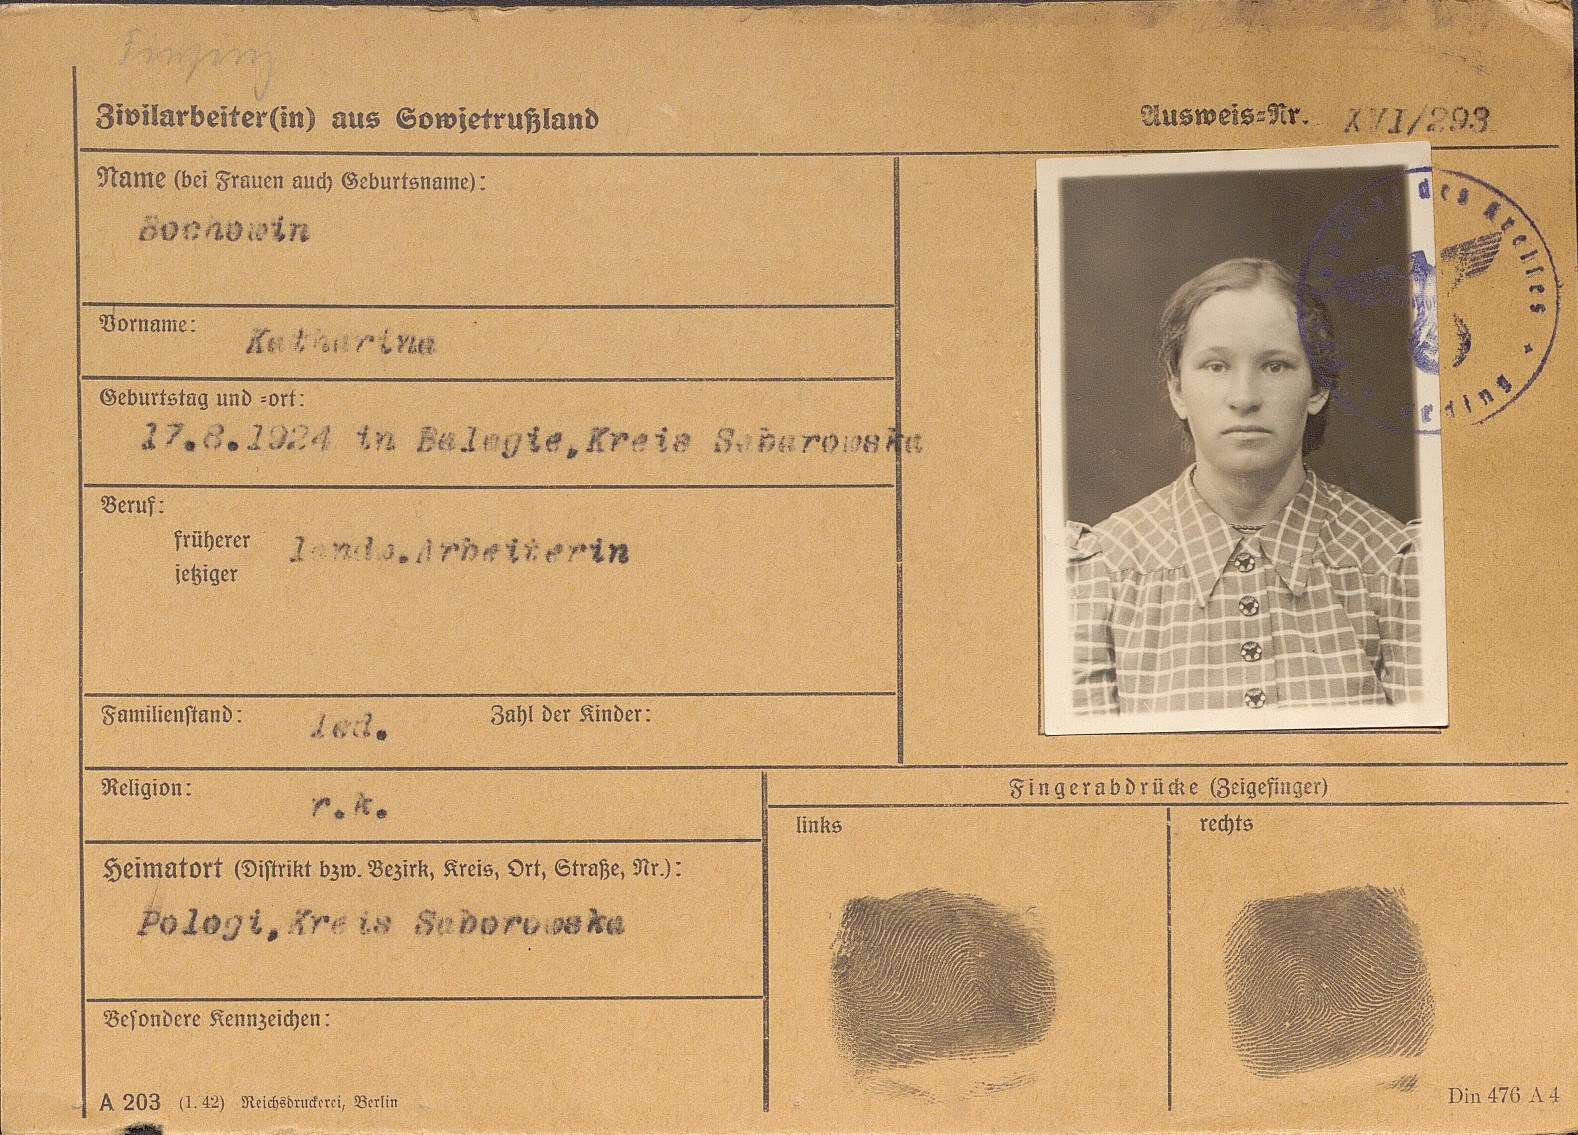 Finsing
Zivilarbeiter(in) aus Sowjetrußland
Ausweis-Nr. XVI/293
Name (bei Frauen auch Geburtsname):
Bochowin
Vorname: Katharina
Geburtstag und -ort:
17.8.1924 in Balogie, Kreis Saborowska
Beruf:
früherer
jetziger
landw. Arbeiterin
Familienstand: led. Zahl der Kinder:
Religion: r.k.
Heimatort (Distrikt bzw. Bezirk, Kreis, Ort, Straße, Nr.):
Pologi, Kreis Saborowska
Besondere Kennzeichen:
Fingerabdrücke (Zeigefinger)
links
rechts
des Kreises
Erding
A 203 (1. 42) Reichsdruckerei, Berlin
Din 476 A 4